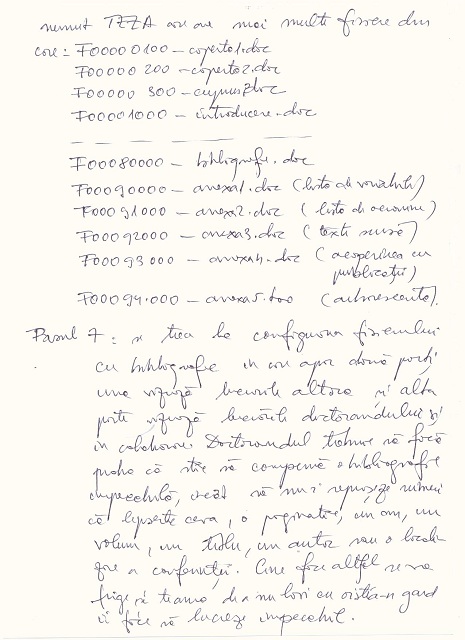 numit TEZA care are mai multe fișiere din
care: F00000100 – coperta1.doc
F00000200 – coperta2.doc
F00000300 – cuprins.doc
F00001000 – introducere.doc
F00080000 – bibliografie.doc
F00090000 – anexa1.doc (lista de variabile)
F00091000 – anexa2.doc (lista de acronime)
F00092000 – anexa3.doc (texte sursă)
F00093000 – anexa4.doc (acoperirea cu
publicații)
F00094000 – anexa5.doc
Pasul 7: se trece la configurarea fișierului
cu bibliografie în care apar două părți
una vizează lucrările altora și alta
parte vizează lucrările doctorandului și
în colaborare. Doctorandul trebuie să facă
proba că știe să compună o bibliografie
impecabilă, încât să nu i reproșeze nimeni
că lipsește ceva, o paginație, un an, un
volum, un titlu, un autor sau o locali-
zare a conferinței. Cine face altfel se va
frige și teama de a nu lovi cu oiștea-n gard
îl face să lucreze impecabil.